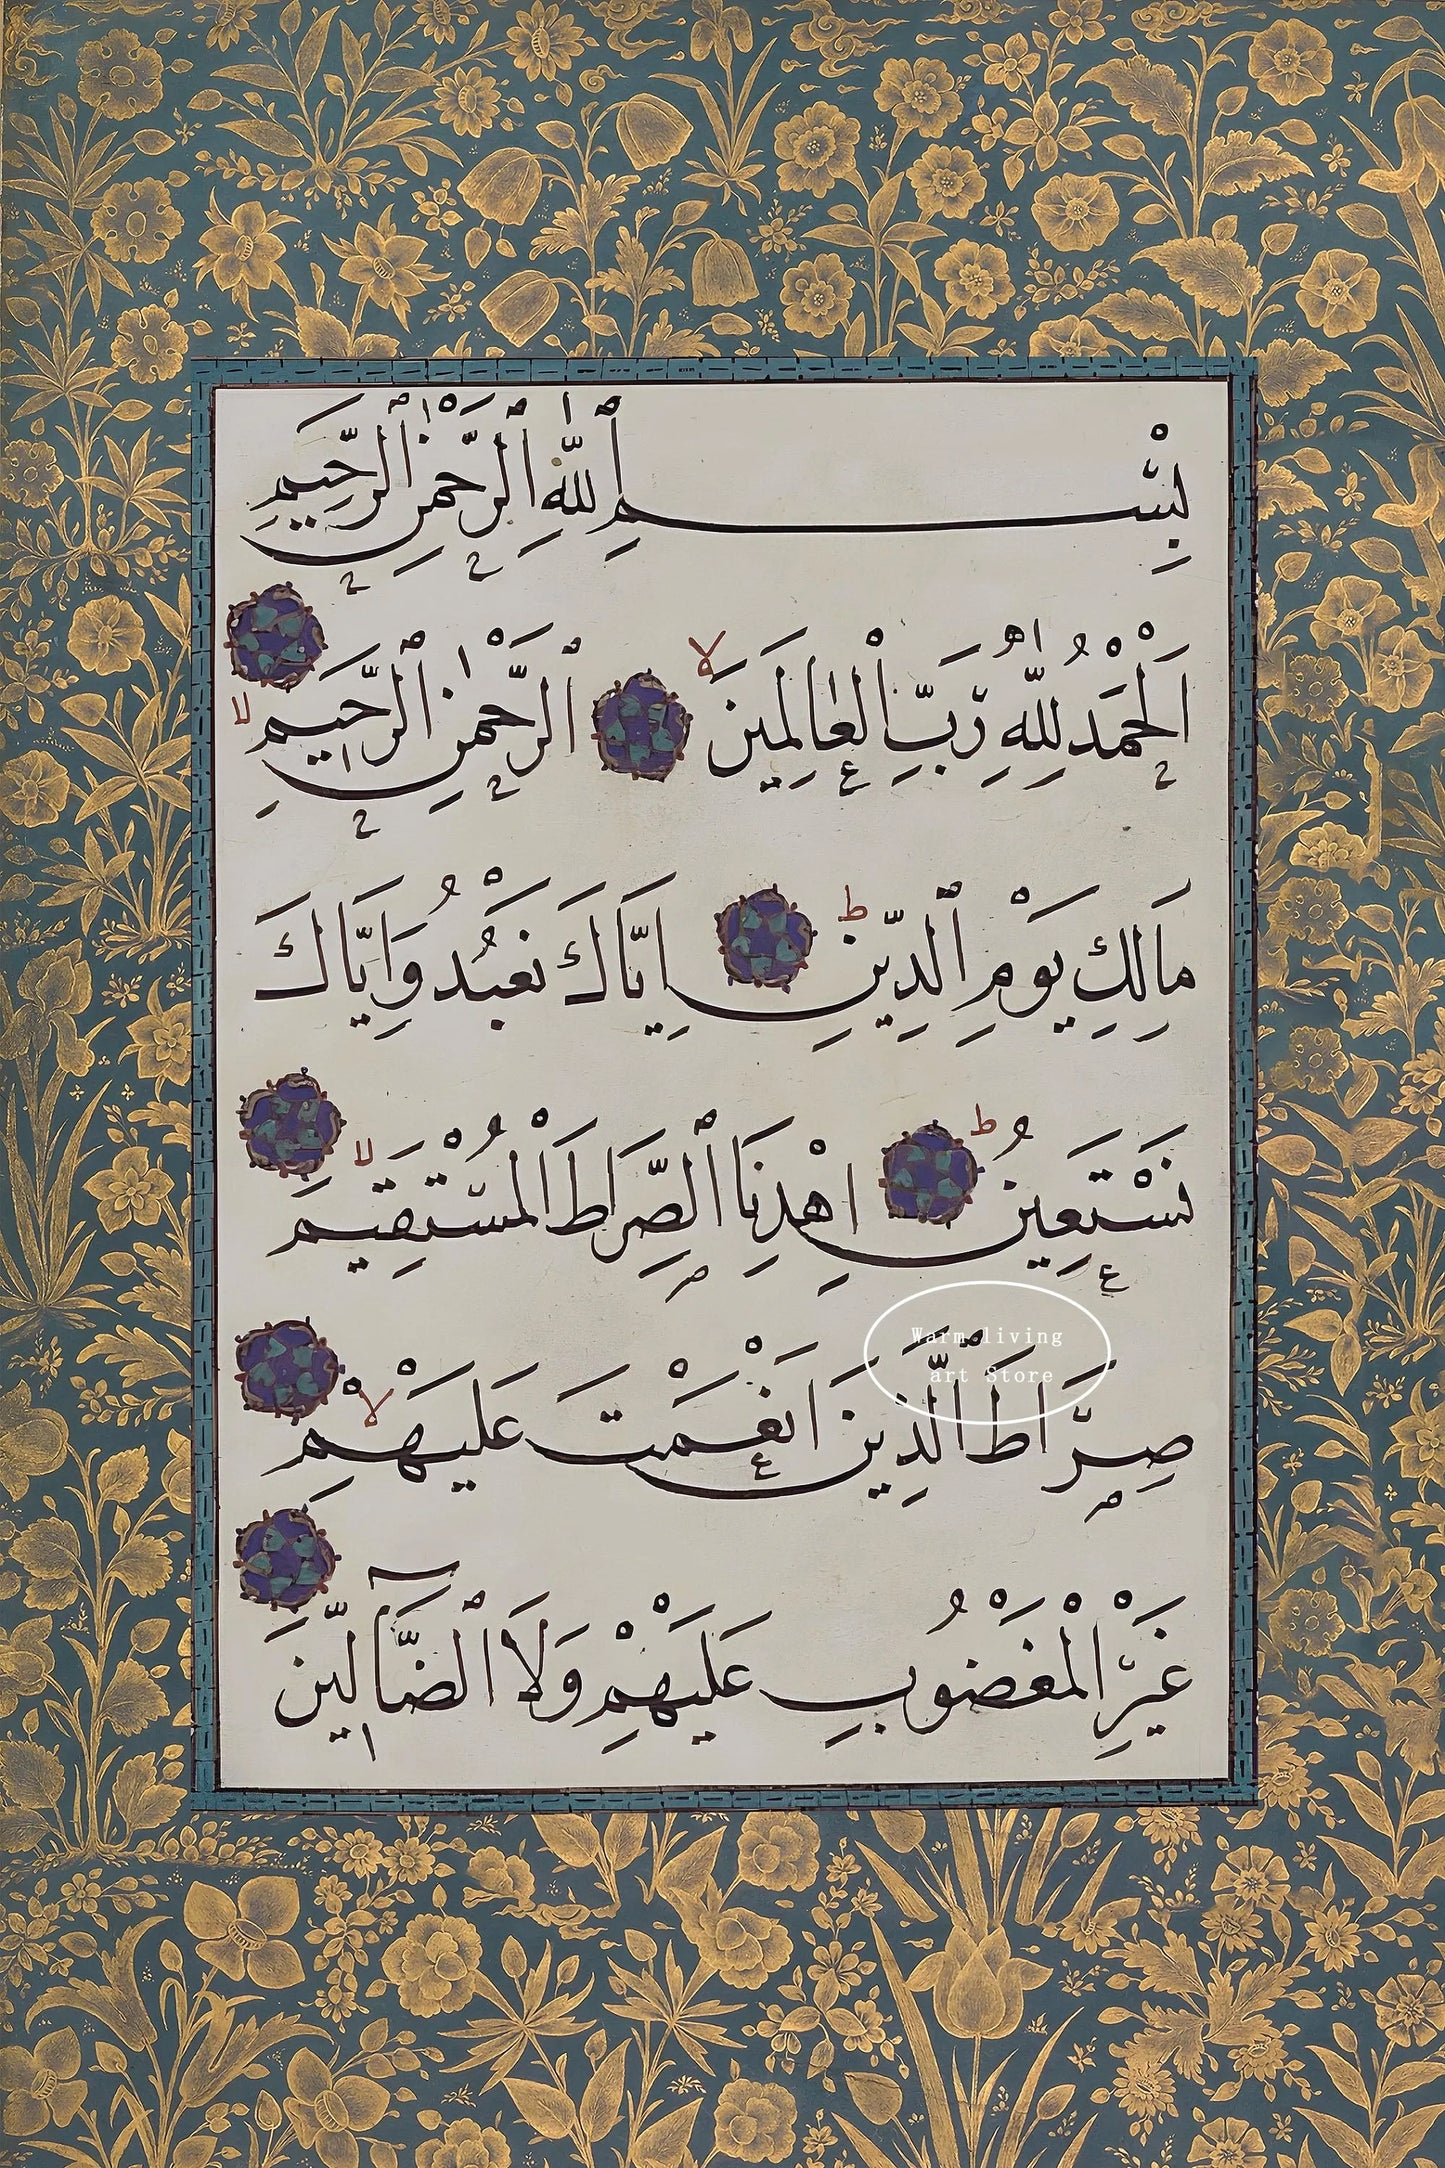 بِسْمِ ٱللّٰهِ ٱلرَّحْمٰنِ ٱلرَّحِيمِ
اَلْحَمْدُ لِلّٰهِ رَبِّ الْعَالَمِينَ ۙ ٱلرَّحْمٰنِ ٱلرَّحِيمِ ۙ
مَالِكِ يَوْمِ ٱلدِّينِ ۭ اِيَّاكَ نَعْبُدُ وَاِيَّاكَ
نَسْتَعِينُ ۭ اِهْدِنَا ٱلصِّرَاطَ الْمُسْتَقِيمَ ۙ
صِرَاطَ ٱلَّذِينَ اَنْعَمْتَ عَلَيْهِمْ ۙ
غَيْرِ الْمَغْضُوبِ عَلَيْهِمْ وَلَا ٱلضَّآلِّينَ
Warm living
art Store